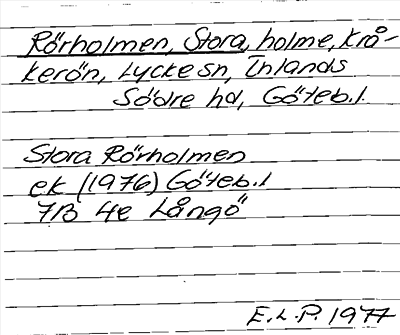 Rörholmen, Stora, holme, Krå-
kerön, Lycke sn, Inlands
Södre hd, Göteb.l.
Stora Rörholmen
ek (1976) Göteb.l
7B 4e Långö
E.L.P. 1977